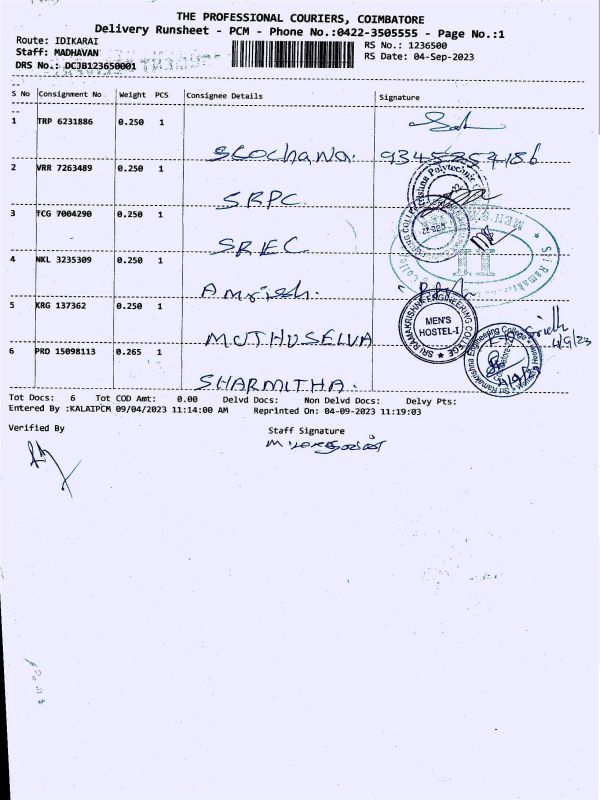 THE PROFESSIONAL COURIERS, COIMBATORE
Delivery Runsheet - PCM - Phone No.:0422-3505555 - Page No.:1
Route: IDIKARAI
RS No.: 1236500
Staff: MADHAVAN
RS Date: 04-Sep-2023
DRS No.: DCJB123650001
S No Consignment No Weight PCS Consignee Details Signature
1 TRP 6231886 0.250 1
9345257186
2 VRR 7263489 0.250 1
SRPC
3 TCG 7004290 0.250 1
SREC
4 NKL 3235309 0.250 1
Amrish.
5 KRG 137362 0.250 1
MUTHUSELVA
6 PRO 15098113 0.265 1
SHARMITHA.
SRI RAMAKRISHNA ENGINEERING COLLEGE
MEN'S
HOSTEL-I
4/9/23
Tot Docs: 6 Tot COD Amt: 0.00 Delvd Docs: Non Delvd Docs: Delvy Pts:
Entered By :KALAIPCM 09/04/2023 11:14:00 AM Reprinted On: 04-09-2023 11:19:03
Verified By
Staff Signature